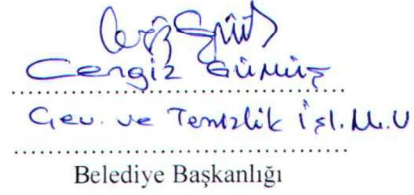 Cengiz Gümüş
........................................
Çev. ve Temizlik İşl. M.V
........................................
Belediye Başkanlığı